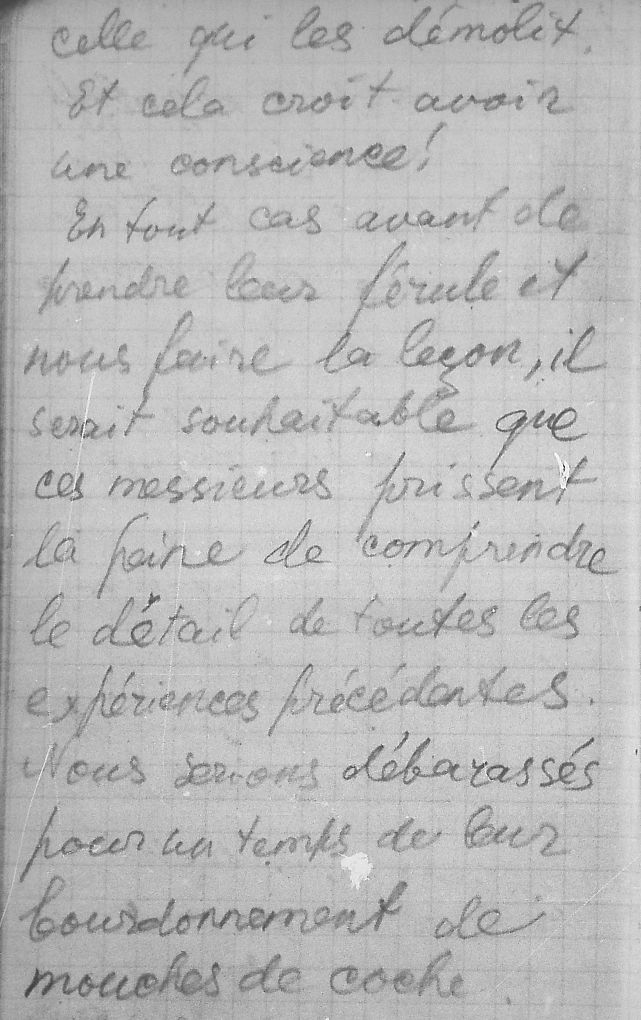 celle qui les démolit.
Et cela croit avoir
une conscience!
En tout cas avant de
prendre leur férule et
nous faire la leçon, il
serait souhaitable que
ces messieurs prissent
la peine de comprendre
le détail de toutes les
expériences précédentes.
Nous serions débarassés
pour un temps de leur
bourdonnement de
mouches de coche.